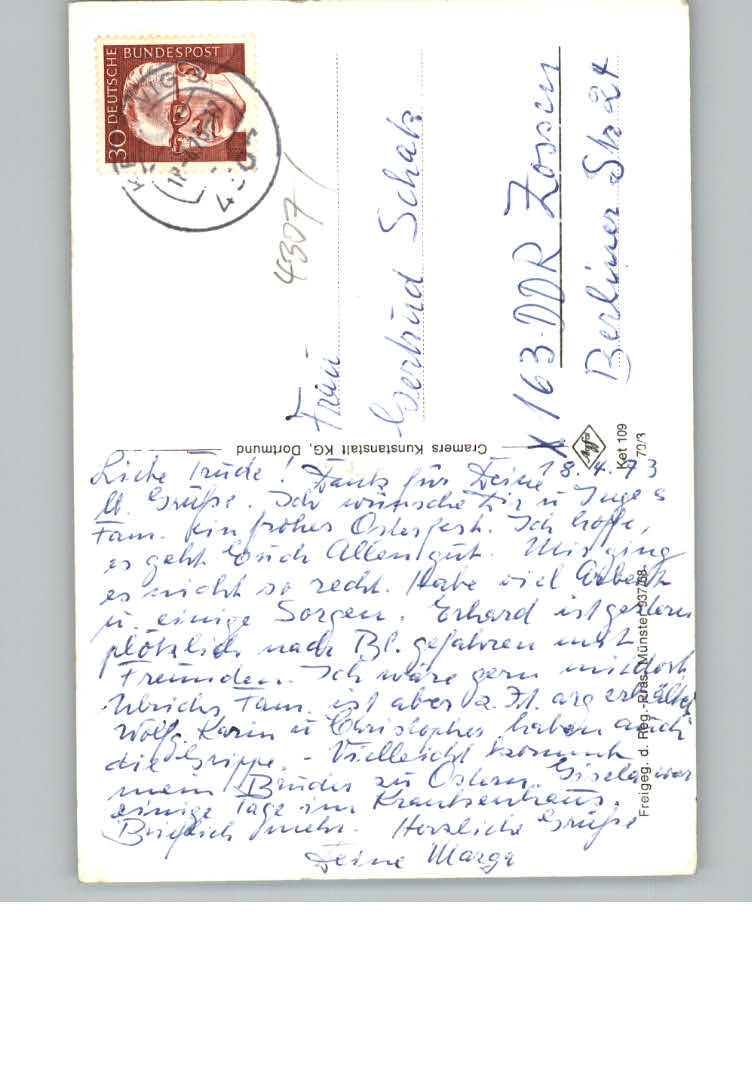 DEUTSCHE BUNDESPOST
30
4307
Frau
Gertrud Schatz
X 163-DDR Zossen
Berliner Str. 24
Cramers Kunstanstalt KG, Dortmund
Agfa
Ket 109
70/3
Freigeg. d. Reg.-Präs. Münster 937/68
18.4.73
Liebe Trude! Dank für Deine
lb. Grüße. Ich wünsche Dir u Inge u
Fam. ein frohes Osterfest. Ich hoffe,
es geht Euch Allen gut. Mir ging
es nicht so recht. Habe viel Arbeit
u. einige Sorgen. Erhard ist gestern
plötzlich nach Bl. gefahren mit
Freunden. Ich wäre gern mit dort
Ulrichs Fam. ist aber z. Zt. arg erkältet
Wolfg. Karin u Christopher haben auch
die Grippe. - Vielleicht kommt
mein Bruder zu Ostern. Gisela war
einige Tage im Krankenhaus.
Brieflich mehr. Herzliche Grüße
Deine Marga